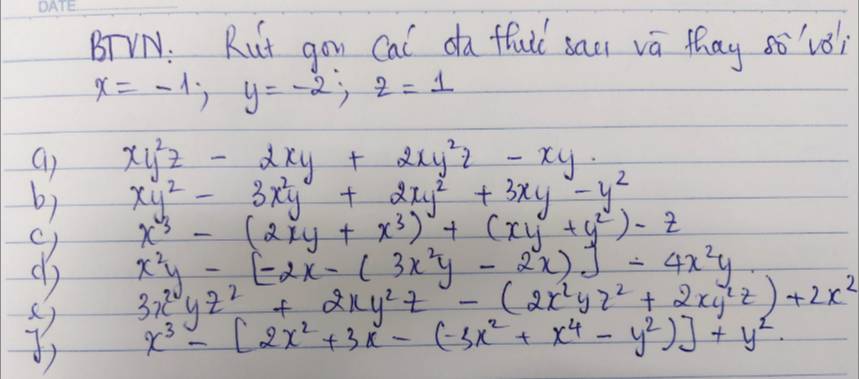 DATE
BTVN: Rút gọn các đa thức sau và thay số với
x = -1; y = -2; z = 1
a) xy²z - 2xy + 2xy²z - xy.
b) xy² - 3x²y + 2xy² + 3xy - y²
c) x³ - (2xy + x³) + (xy + y²) - z
d) x²y - [-2x - (3x²y - 2x)] - 4x²y.
e) 3x²yz² + 2xy²z - (2x²yz² + 2xy²z) + 2x²
f) x³ - [2x² + 3x - (-3x² + x⁴ - y²)] + y².